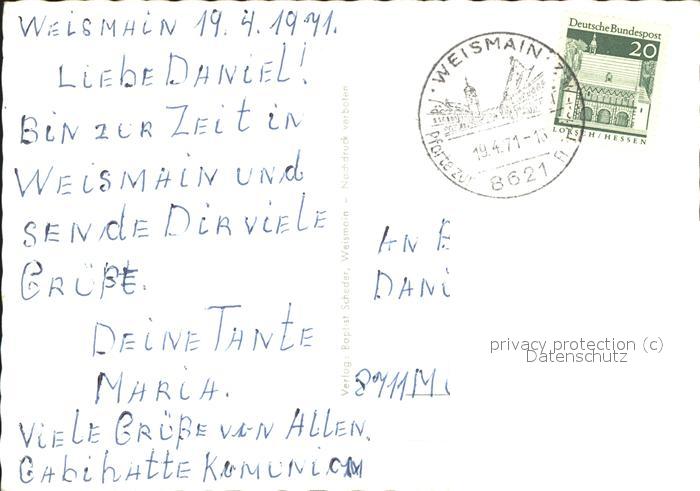 WEISMAIN 19. 4. 1971.
LIEBE DANIEL!
BIN ZUR ZEIT IN
WEISMAIN UND
SENDE DIR VIELE
GRÜßE.
DEINE TANTE
MARIA.
VIELE GRÜßE VON ALLEN.
GABI HATTE KOMUNION
Verlag: Baptist Scheder, Weismain - Nachdruck verboten
WEISMAIN
19.4.71-10
8621
Pforte zum
Deutsche Bundespost
20
LORSCH/HESSEN
AN
DANI
8711 M
privacy protection (c)
Datenschutz